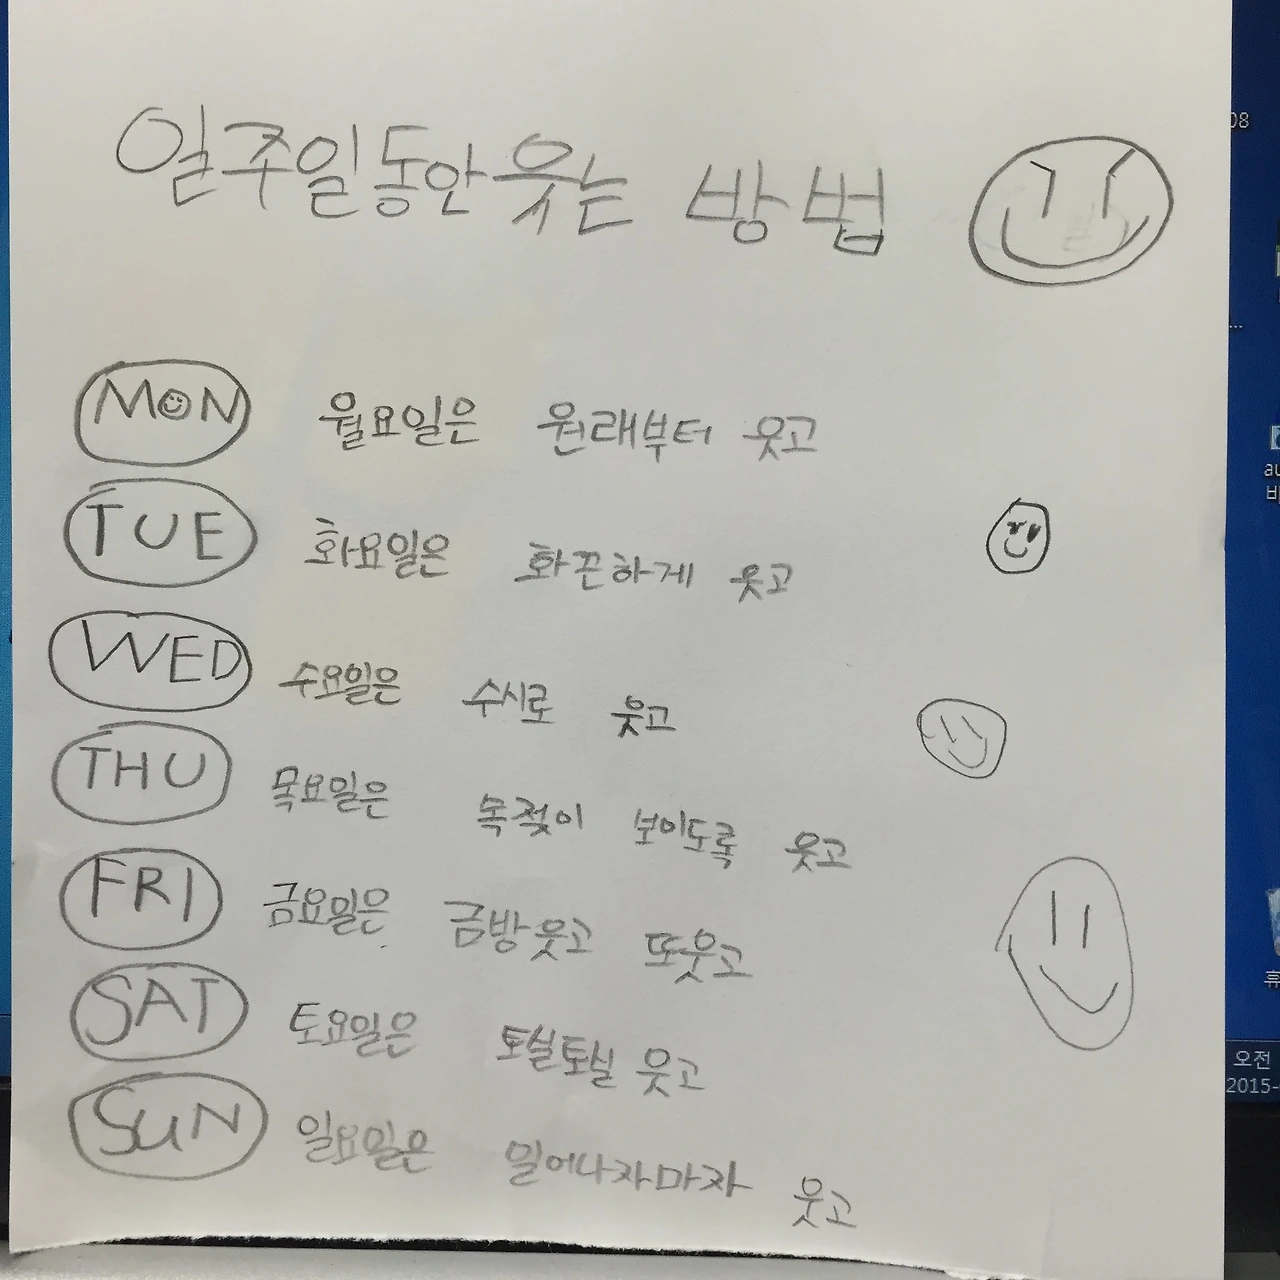 일주일동안 웃는 방법
MON 월요일은 원래부터 웃고
TUE 화요일은 화끈하게 웃고
WED 수요일은 수시로 웃고
THU 목요일은 목젖이 보이도록 웃고
FRI 금요일은 금방웃고 또웃고
SAT 토요일은 토실토실 웃고
SUN 일요일은 일어나자마자 웃고
08
au
오전
2015-